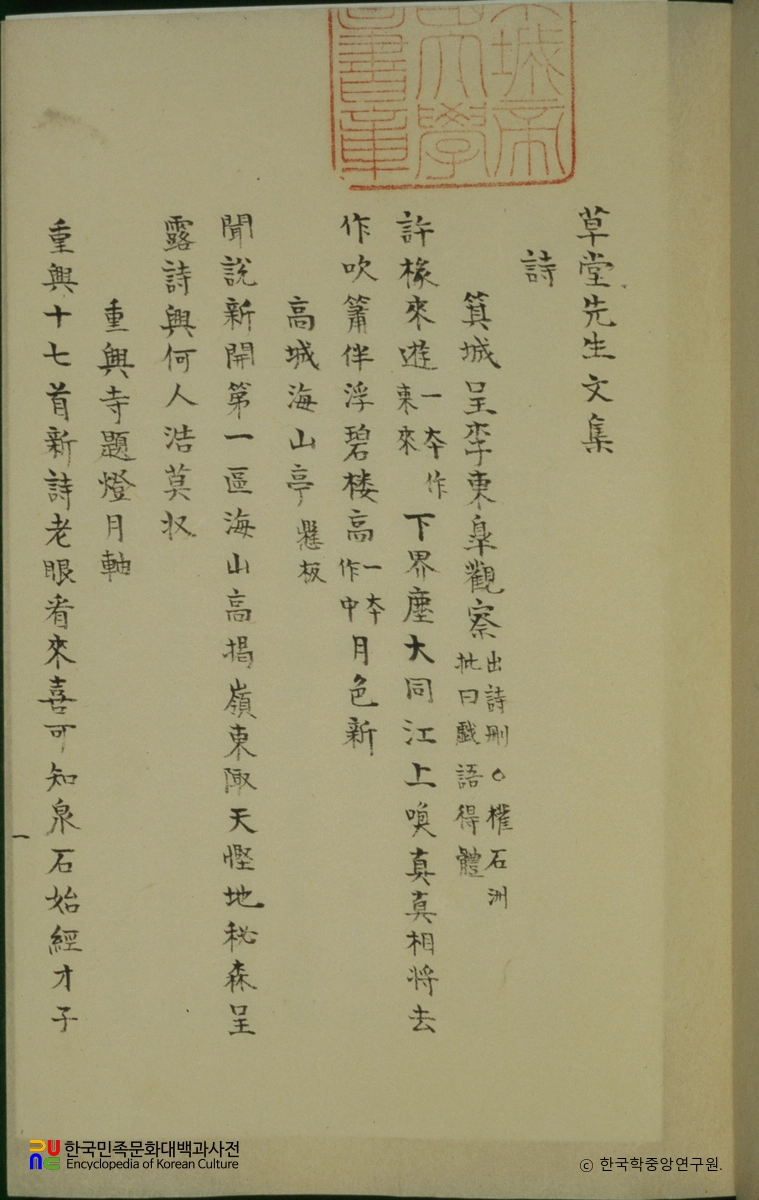 草堂先生文集
詩
箕城呈李東皐觀察 出詩刪○權石洲批曰戱語得體
許椽來遊 一本作東來 下界塵大同江上喚真真相將去
作吹簫伴浮碧楼高 一本作中 月色新
高城海山亭 懸板
聞說新開第一區海山高揭嶺東陬天慳地秘森呈
露詩興何人浩莫収
重興寺題燈月軸
重興十七首新詩老眼看來喜可知泉石始經才子
一
城帝
大學
圖書章
한국민족문화대백과사전
Encyclopedia of Korean Culture
ⓒ 한국학중앙연구원.